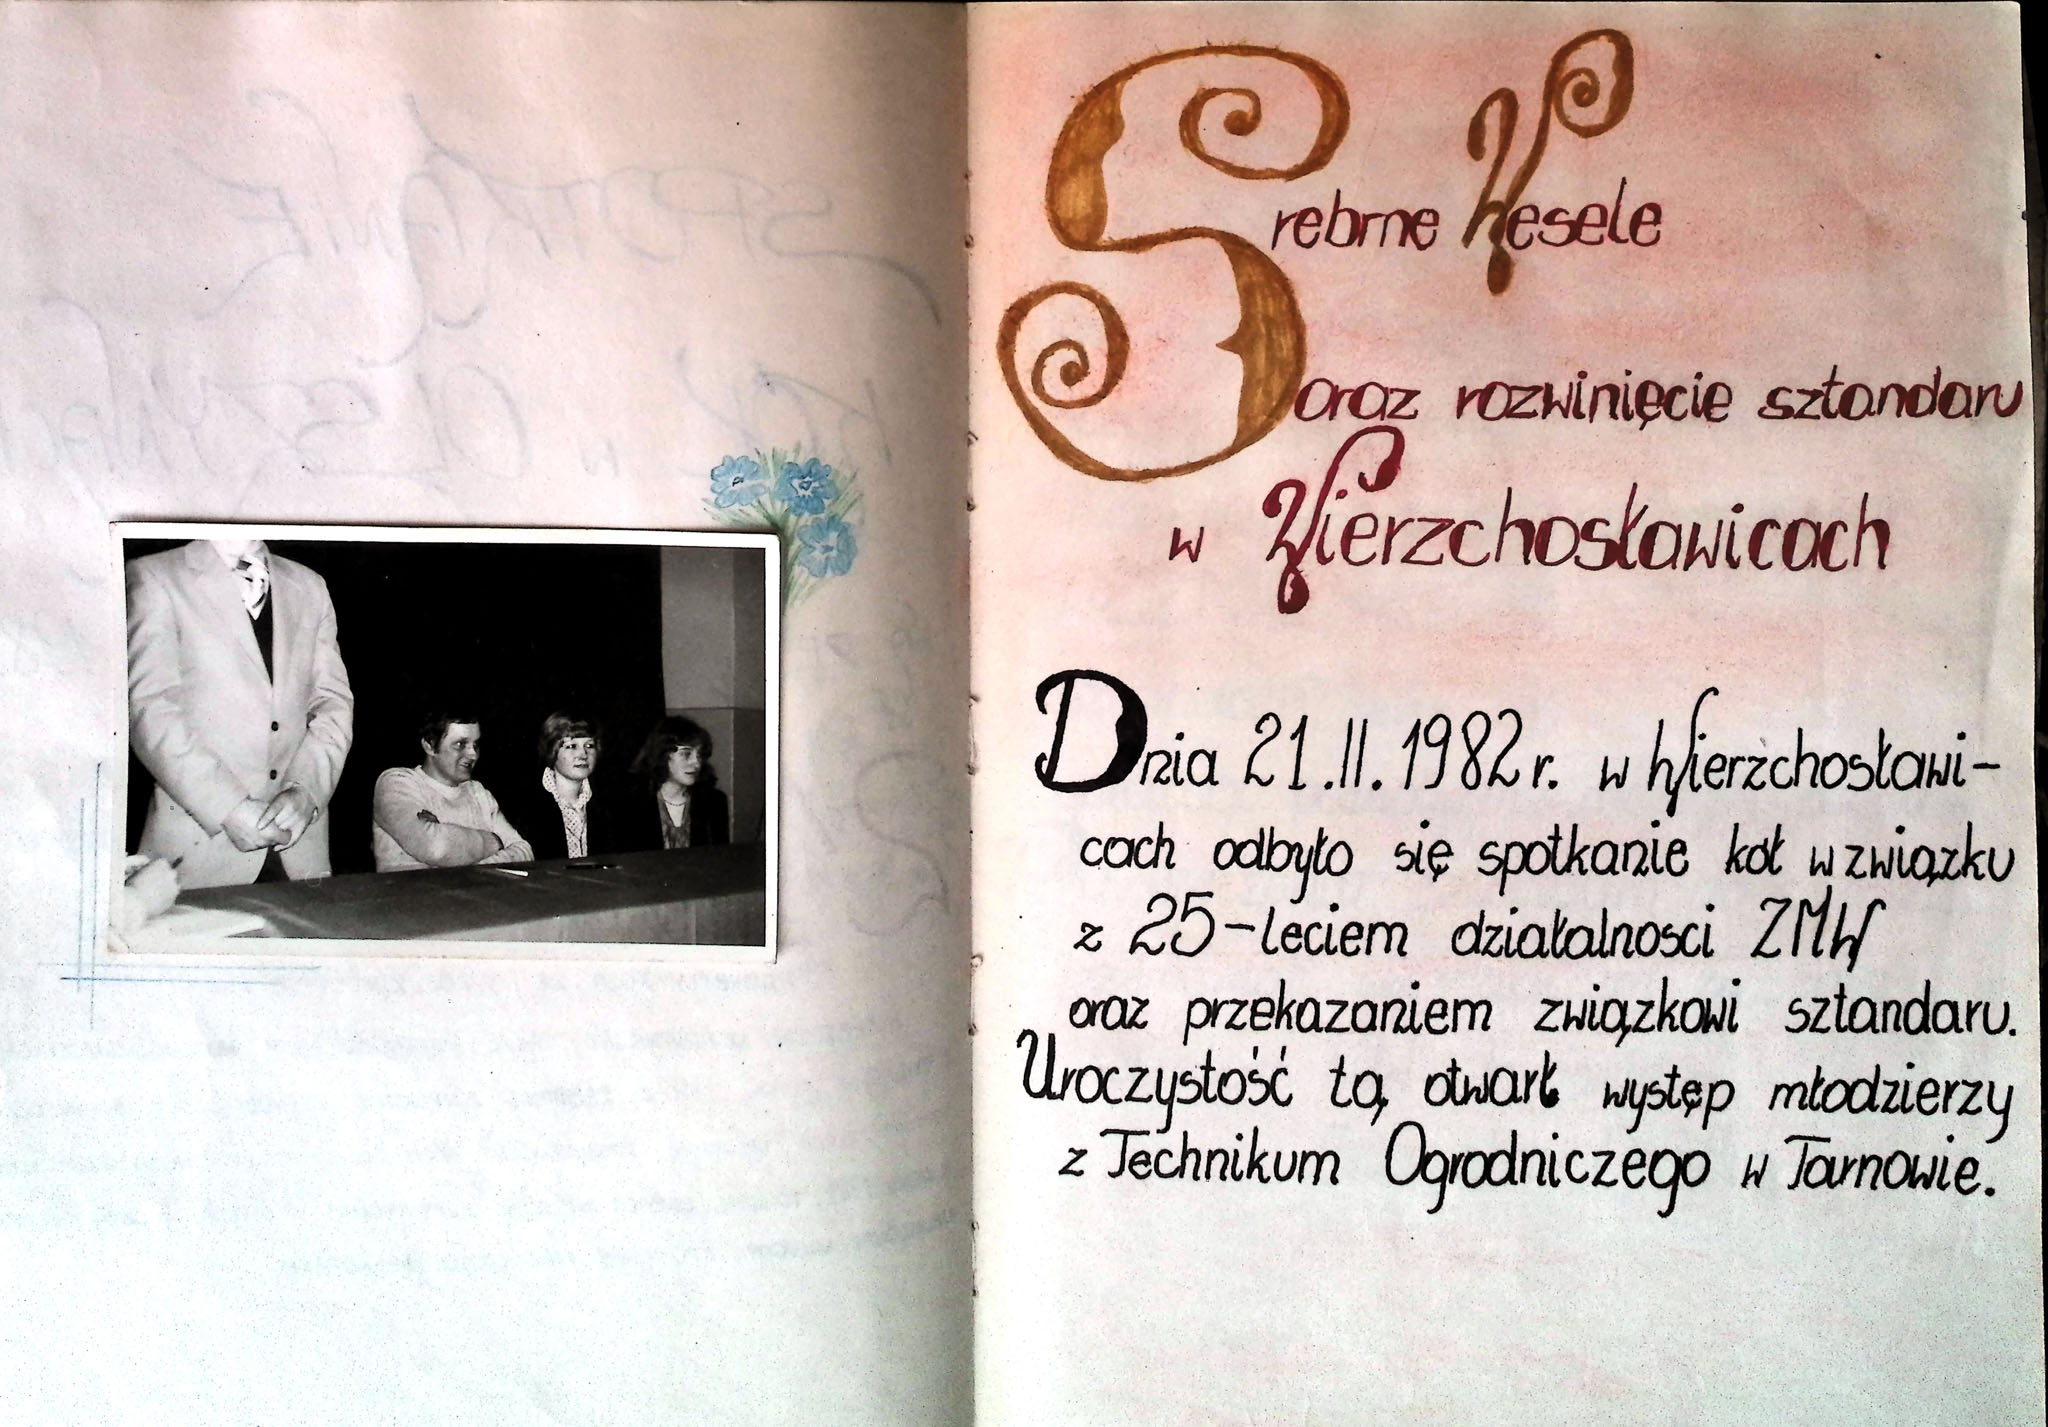 Srebrne Wesele
oraz rozwinięcie sztandaru
w Wierzchosławicach
Dnia 21.II.1982 r. w Wierzchosławi-
cach odbyło się spotkanie kół w związku
z 25-leciem działalnosci ZMW
oraz przekazaniem związkowi sztandaru.
Uroczystość tą, otwarł występ młodzierzy
z Technikum Ogrodniczego w Tarnowie.